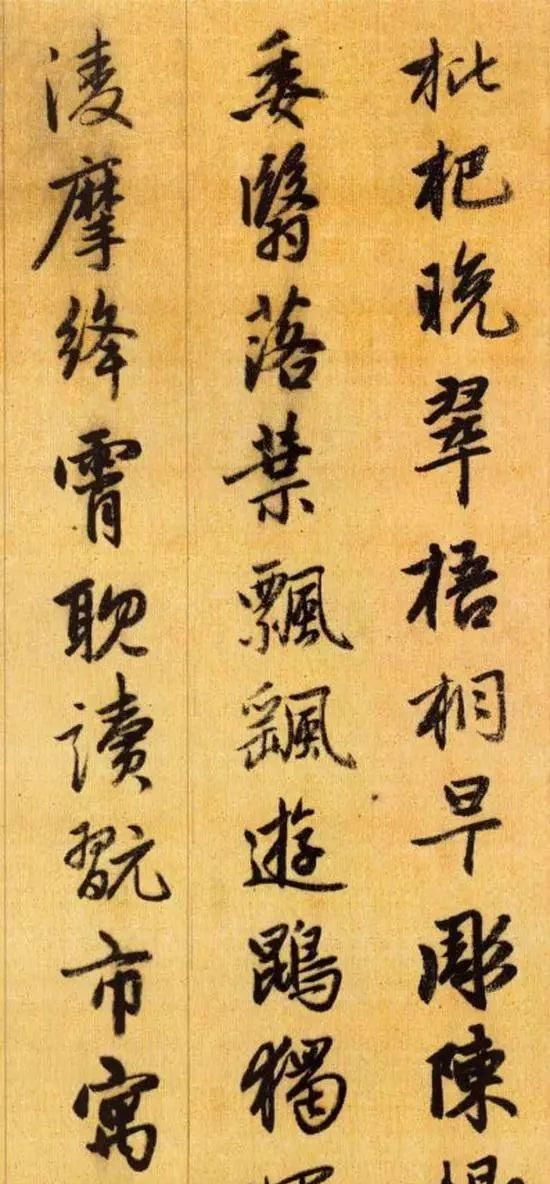 枇杷晚翠梧桐早彫陳
委翳落葉飄颻遊鵾獨
凌摩絳霄耽讀翫市寓